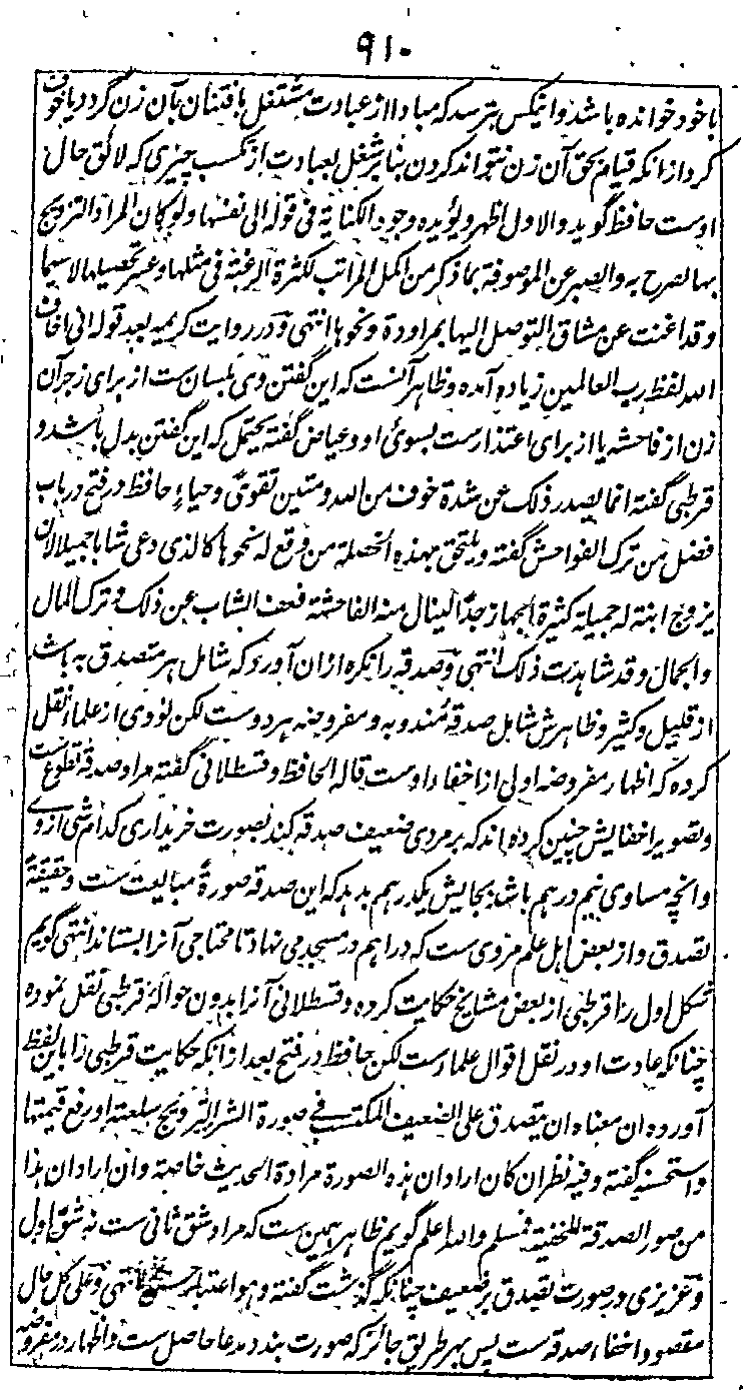 ۹۱۰
باخود خوانده باشد وانیکس بترسد که مبادا از عبادت مشتغل بافتنان بآن زن گردد یا خوف
کرد از انکه قیام بحق آن زن نتواند کردن بنابر شغل بعبادت از تکسب چیزی که لائق حال
اوست حافظ گوید والاول اظهر ویؤیده وجود الکنایة فی قوله الی نفسها ولو کان المراد التزویج
بها لصرح به والصبر عن الموصوفة بما ذکر من اکمل المراتب لکثرة الرغبة فی مثلها وعسر تحصیلها لاسیما
وقد اغنت عن مشاق التوصل الیها بمراودة ونحوها انتهی ودر روایت کریمه بعد قوله انی اخاف
الله لفظ رب العالمین زیاده آمده وظاهر آنست که این گفتن وی بلسان ست از برای زجر آن
زن از فاحشه یا از برای اعتذار ست بسوی او وعیاض گفته یحتمل که این گفتن بدل باشد و
قرطبی گفته انما یصدر ذلک عن شدة خوف من الله ومتین تقوی وحیاء حافظ در فتح در باب
فضل من ترک الفواحش گفته ویلتحق بهذه الخصلة من وقع له نحوها کالذی دعی شابا جمیلا لان
یزوج ابنة له جمیلة کثیرة الجهاز جدا لینال منه الفاحشة فعف الشاب عن ذلک وترک المال
والجمال وقد شاهدت ذلک انتهی وصدقه را نکره ازان آورد که شامل هر متصدق به باشد
از قلیل وکثیر وظاهرش شامل صدقۀ مندوبه ومفروضه هر دوست لکن نووی از علماء نقل
کرده که اظهار مفروضه اولی از اخفاء اوست قاله الحافظ وقسطلانی گفته مراد صدقۀ تطوع ست
وتصویر اخفایش چنین کرده اند که بر مردی ضعیف صدقه کند بصورت خریداری کدام شی از وے
وانچه مساوی نیم درهم باشد بجالیش یکدرهم بدهد که این صدقه صورة مبالیعت ست وحقیقة
تصدق واز بعض اهل علم مروی ست که دراهم در مسجد می نهاد تا محتاجی آنرا بستاند انتهی گویم
شکل اول را قرطبی از بعض مشایخ حکایت کرده وقسطلانی آنرا بدون حوالۀ قرطبی نقل نموده
چنانکه عادت او در نقل اقوال علماء ست لکن حافظ در فتح بعد از انکه حکایت قرطبی را باین لفظ
آورده ان معناه ان یتصدق علی الضعیف المکتسب فی صورة الشراء لترویج سلعته او رفع قیمتها
واستحسنه گفته وفیه نظر ان کان اراد ان هذه الصورة مرادة الحدیث خاصة وان اراد ان هذا
من صور الصدقة المخفیة فمسلم والله اعلم گویم ظاهر همین ست که مراد شق ثانی ست نه شق اول
وعزیزی در صورت تصدق بر ضعیف چنانکه گذشت گفته وهو اعتبار حسن انتهی وعلی کل حال
مقصود اخفاء صدقه ست پس بهر طریق جائز که صورت بندد مدعا حاصل ست واظهار در مفروضه